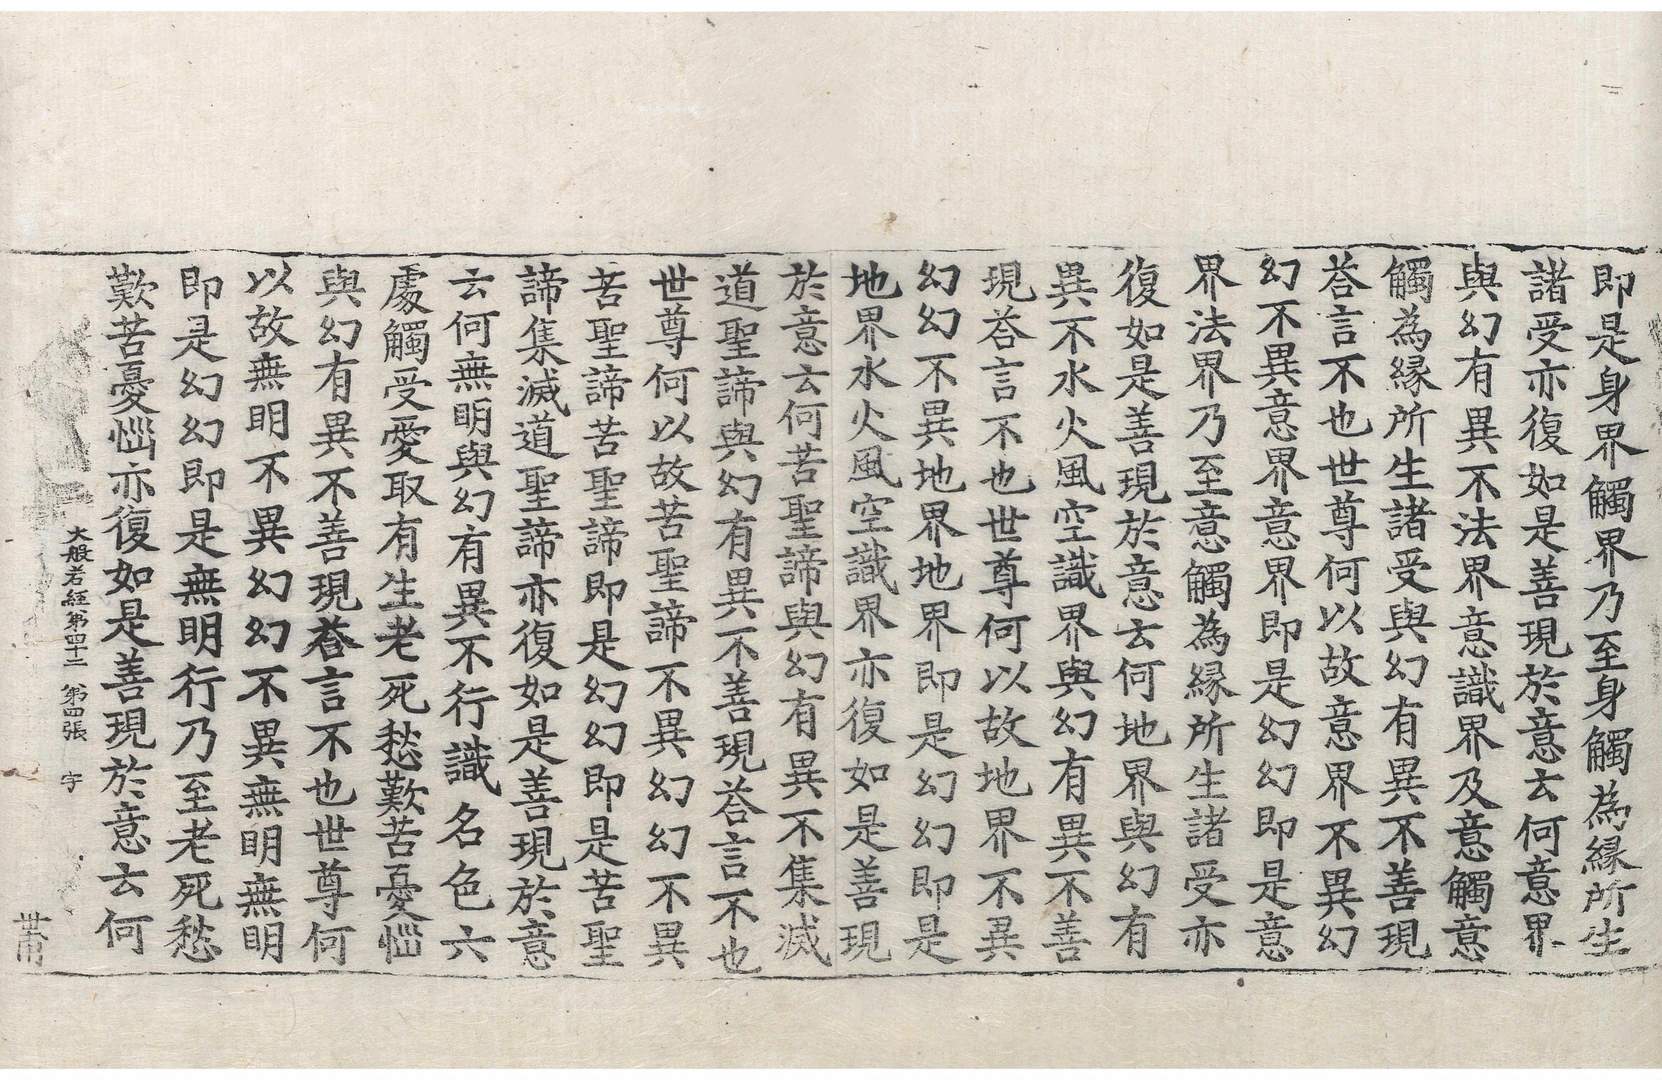 即是身界觸界乃至身觸為緣所生
諸受亦復如是善現於意云何意界
與幻有異不法界意識界及意觸意
觸為緣所生諸受與幻有異不善現
荅言不也世尊何以故意界不異幻
幻不異意界意界即是幻幻即是意
界法界乃至意觸為緣所生諸受亦
復如是善現於意云何地界與幻有
異不水火風空識界與幻有異不善
現荅言不也世尊何以故地界不異
幻幻不異地界地界即是幻幻即是
地界水火風空識界亦復如是善現
於意云何苦聖諦與幻有異不集滅
道聖諦與幻有異不善現荅言不也
世尊何以故苦聖諦不異幻幻不異
苦聖諦苦聖諦即是幻幻即是苦聖
諦集滅道聖諦亦復如是善現於意
云何無明與幻有異不行識名色六
處觸受愛取有生老死愁歎苦憂惱
與幻有異不善現荅言不也世尊何
以故無明不異幻幻不異無明無明
即是幻幻即是無明行乃至老死愁
歎苦憂惱亦復如是善現於意云何
大般若經第四十二 第四張 字